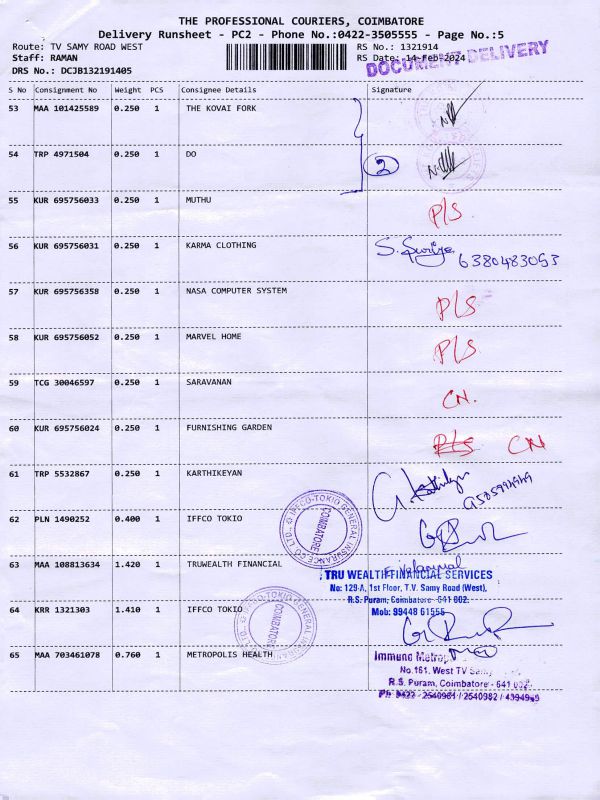 THE PROFESSIONAL COURIERS, COIMBATORE
Delivery Runsheet - PC2 - Phone No.:0422-3505555 - Page No.:5
Route: TV SAMY ROAD WEST RS No.: 1321914
Staff: RAMAN RS Date: 14-Feb-2024
DOCUMENT DELIVERY
DRS No.: DCJB132191405
S No Consignment No Weight PCS Consignee Details Signature
53 MAA 101425589 0.250 1 THE KOVAI FORK
54 TRP 4971504 0.250 1 DO 2
55 KUR 695756033 0.250 1 MUTHU P/S
56 KUR 695756031 0.250 1 KARMA CLOTHING 6380483053
57 KUR 695756358 0.250 1 NASA COMPUTER SYSTEM P/S
58 KUR 695756052 0.250 1 MARVEL HOME P/S
59 TCG 30046597 0.250 1 SARAVANAN CN.
60 KUR 695756024 0.250 1 FURNISHING GARDEN P/S CN
61 TRP 5532867 0.250 1 KARTHIKEYAN
62 PLN 1490252 0.400 1 IFFCO TOKIO
IFFCO-TOKIO GENERAL INSURANCE CO LTD. COIMBATORE
63 MAA 108813634 1.420 1 TRUWEALTH FINANCIAL
TRU WEALTH FINANCIAL SERVICES
No: 129-A, 1st Floor, T.V. Samy Road (West),
R.S. Puram, Coimbatore - 641 002.
Mob: 99448 61555
64 KRR 1321303 1.410 1 IFFCO TOKIO
COIMBATORE
65 MAA 703461078 0.760 1 METROPOLIS HEALTH
Immuno
No.161, West TV Samy
R.S. Puram, Coimbatore - 641
Ph 0422 - 2540981 / 2540982 / 4394949